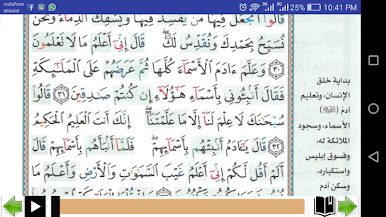 vodafone
etisalat
51%
10:41 PM
قَالُوٓا۟ أَتَجْعَلُ فِيهَا مَن يُفْسِدُ فِيهَا وَيَسْفِكُ ٱلدِّمَآءَ وَنَحْنُ
نُسَبِّحُ بِحَمْدِكَ وَنُقَدِّسُ لَكَ ۖ قَالَ إِنِّىٓ أَعْلَمُ مَا لَا تَعْلَمُونَ
٣٠ وَعَلَّمَ ءَادَمَ ٱلْأَسْمَآءَ كُلَّهَا ثُمَّ عَرَضَهُمْ عَلَى ٱلْمَلَٰٓئِكَةِ
فَقَالَ أَنۢبِـُٔونِى بِأَسْمَآءِ هَٰٓؤُلَآءِ إِن كُنتُمْ صَٰدِقِينَ ٣١ قَالُوا۟
سُبْحَٰنَكَ لَا عِلْمَ لَنَآ إِلَّا مَا عَلَّمْتَنَآ ۖ إِنَّكَ أَنتَ ٱلْعَلِيمُ ٱلْحَكِيمُ
٣٢ قَالَ يَٰٓـَٔادَمُ أَنۢبِئْهُم بِأَسْمَآئِهِمْ ۖ فَلَمَّآ أَنۢبَأَهُم بِأَسْمَآئِهِمْ قَالَ
أَلَمْ أَقُل لَّكُمْ إِنِّىٓ أَعْلَمُ غَيْبَ ٱلسَّمَٰوَٰتِ وَٱلْأَرْضِ وَأَعْلَمُ مَا
بداية خلق
الإنسان، وتعليم
آدم
الأسماء، وسجود
الملائكة له،
وفسوق إبليس
واستكباره،
وسكن آدم